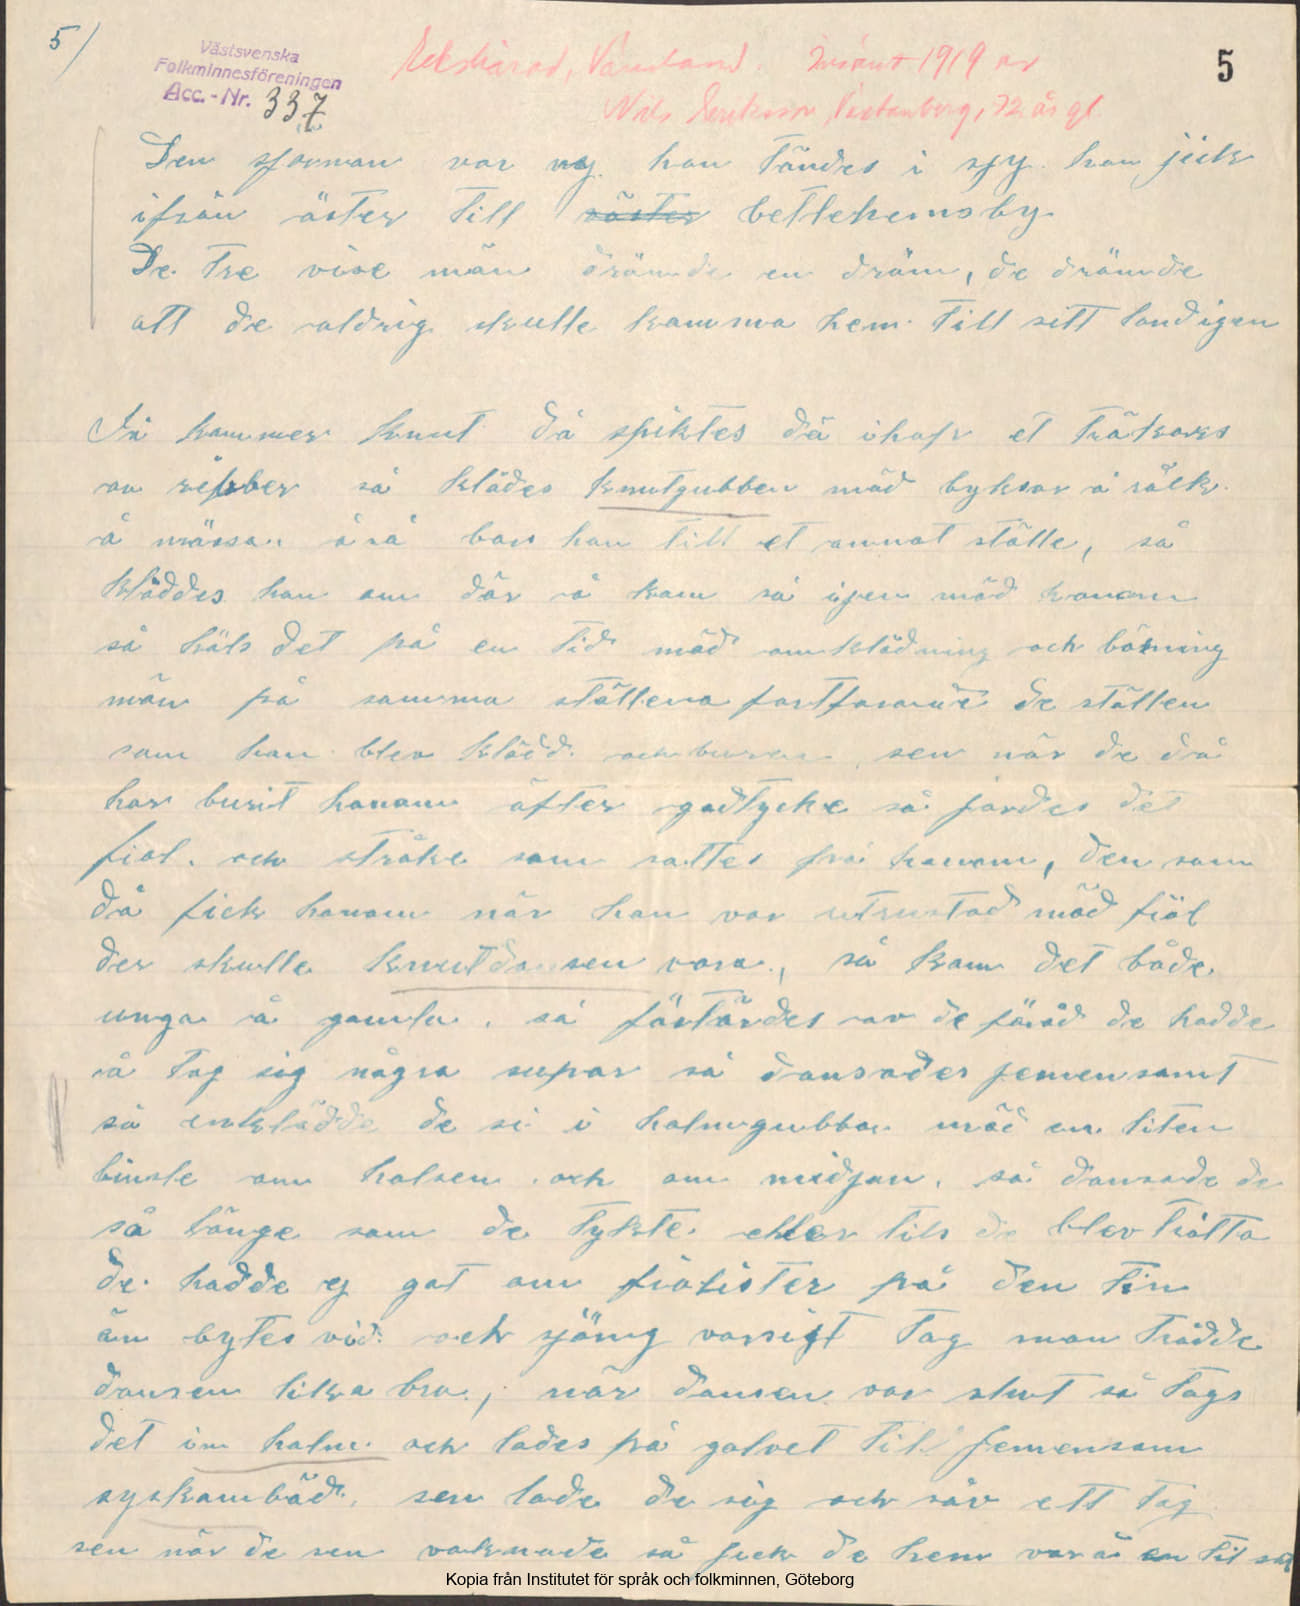 5/
Västsvenska
Folkminnesföreningen
Acc.-Nr. 337
Ekshärad, Värmland. Insänt 1919 av
Nils Eriksson 72 år gl.
5
Den sjarnan var ny han tändes i sjy han jick
ifrån öster till väster betlehemsby
De tre vise män drämde en dräm, de drämde
att de aldrig skulle komma hem till sitt land igen
Så kammer knut då spiktes dä ihop et träkors
av ribber så klädes knutgubben mäd byksor å rålk
å mössa å så bars han till et annat ställe, så
kläddes han om där å kom så igen mäd honom
så häls det på en tid mäd omklädning och bärning
män på samma ställena fortfarande de ställen
som han blev klädd och buren, sen när de då
har burit honom äfter godtycke så jordes det
fiol och stråke som sattes på honom, den som
då fick honom när han var utrustad mäd fiol
der skulle knutdansen vara, så kom det både
unga å gamla, så förtärdes av de föråd de hadde
å tog sig några supar så dansades jemensamt
så inklädde de si i halmgubbar mäd en liten
binsle om halsen och om midjan, så dansade de
så länge som de tykte eller tils de blev trötta
de hadde ej got om fiolister på den tin
än bytes vid och sjöng varsigt tag man trådde
dansen lika bra, när dansen var slut så togs
det in halm och lades på golvet till jemensam
syskonbäd, sen lade de sig och såv ett tag
sen när de sen vaknade så jick de hem var å en til sit
Kopia från Institutet för språk och folkminnen, Göteborg